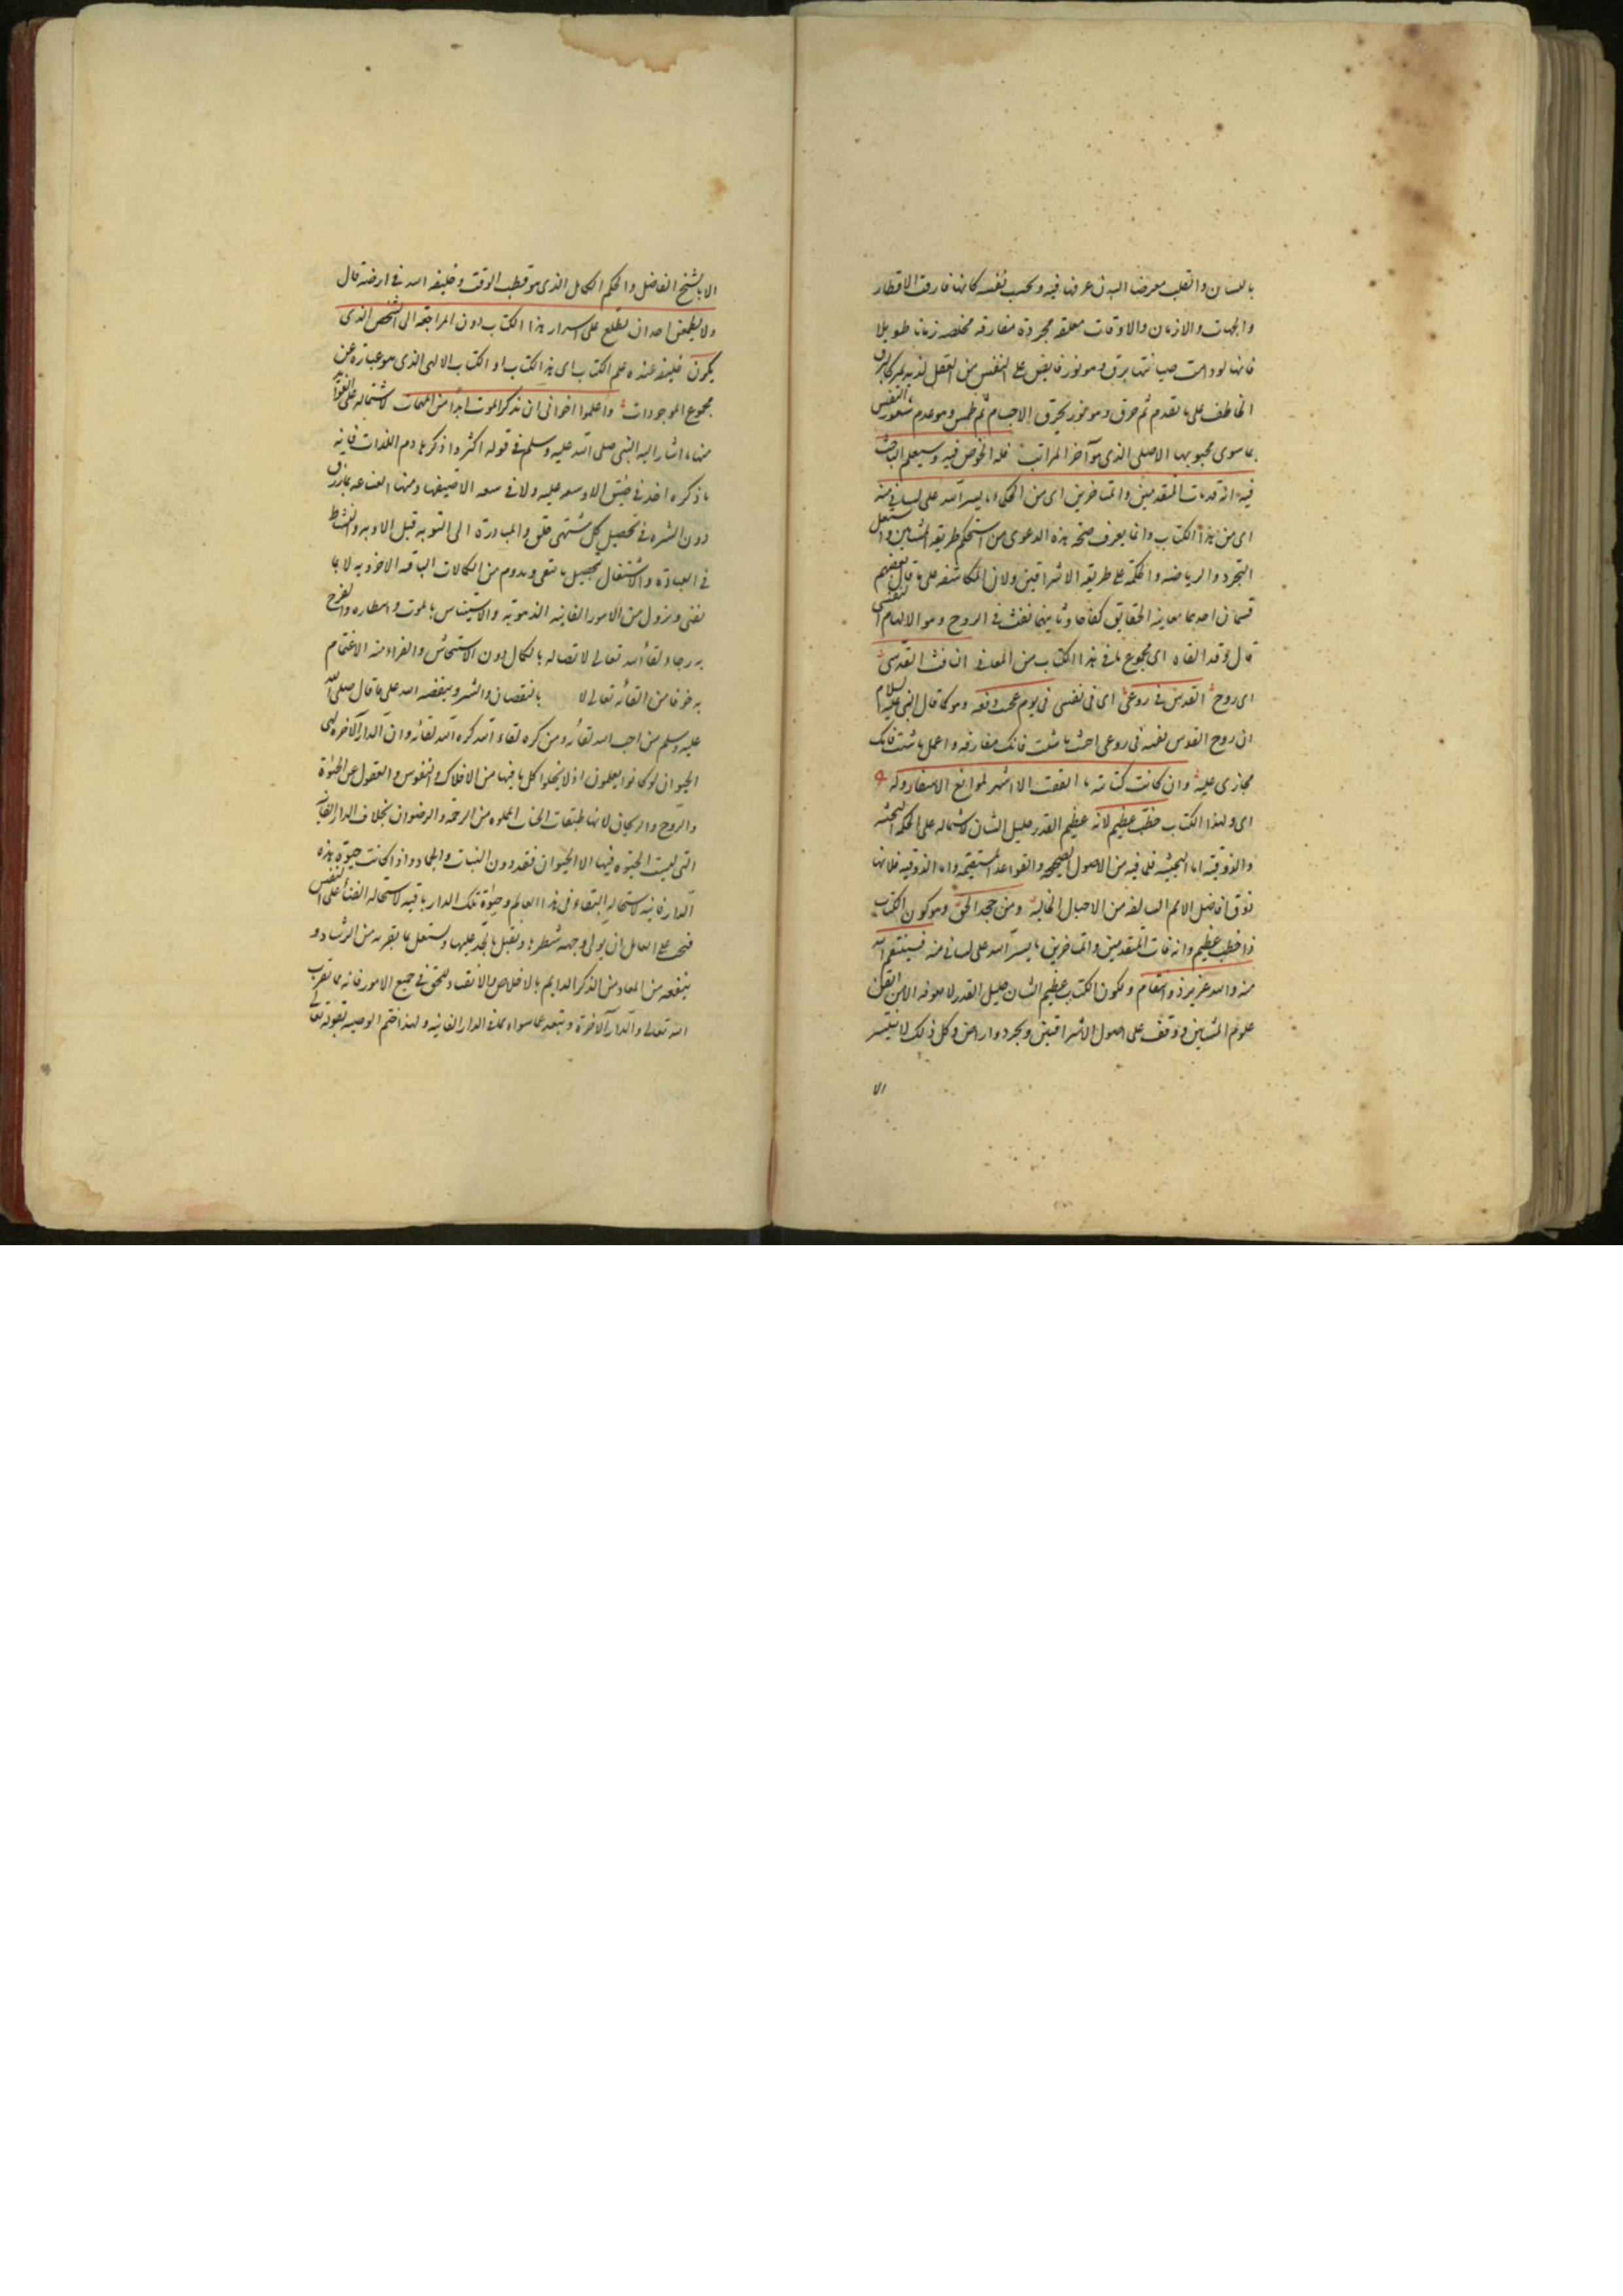 باللسان والقلب معرضا البدن عرفها فيه ويحسب نفسه كانها فارقت الاقطار
والجهات والازمان والاوقات معلقه مجردة مفارقه مخلصه زمانا طويلا
فانها لو دامت صيانتها برق وهو نور فايض على النفس من العقل لذيذ يمر كالبرق
الخاطف على ما تقدم ثم حرق وهو نور يحرق الاجسام ثم طمس وهو عدم شعور النفس
بما سوى محبوبها الاصلى الذى هو آخر المراتب فله الخوض فيه وسيعلم الباحث
فيه انه قد فات المتقدمين والمتاخرين اى من الحكماء ما يسر الله على لسانى منه
اى من هذا الكتاب وانما يعرف صحه هذه الدعوى من استحكم طريقه المشايين واستعمل
التجرد والرياضه والحكمه على طريقه الاشراقيين ولان المكاشفه على ما قال بعضهم
قسمان احدهما معاينه الحقايق كفاحا وثانيهما نفث فى الروح وهو الالهام النفسى
قال وقد القاه اى مجموع ما فى هذا الكتاب من المعانى النافث القدسى
اى روح القدس فى روعى اى فى نفسى فى يوم عجيب دفعه وهو كما قال النبى عليه السلام
ان روح القدس نفث فى روعى احبب ما شئت فانك مفارقه واعمل ما شئت فانك
مجازى عليه وان كانت كتابته ما اتفقت الا فى اشهر لموانع الاسفار وله
اى ولهذا الكتاب خطب عظيم لانه عظيم القدر جليل الشان لاشتماله على الحكم البحثيه
والذوقيه اما البحثيه فلما فيه من الاصول الصحيحه والقواعد المستقيمه واما الذوقيه فلانها
ذوق افاضل الامم السالفه من الاجيال الخاليه ومن جحد الحق وهو كون الكتاب
ذا خطب عظيم وانه فات المتقدمين والمتاخرين ما يسر الله على لسانى منه فسينتقم الله
منه والله عزيز ذو انتقام ولكون الكتاب عظيم الشان جليل القدر لا يعرفه الا من اتقن
علوم المشايين ووقف على اصول الاشراقيين وتجرد وارتاض وكل ذلك لا يتيسر
الا
الا بالشيخ الفاضل والحكيم الكامل الذى هو قطب الوقت وخليفه الله فى ارضه قال
ولا يطمعن احد ان يطلع على اسرار هذا الكتاب دون المراجعه الى الشخص الذى
يكون خليفه عنده علم الكتاب اى هذا الكتاب او الكتاب الالهى الذى هو عباره عن
مجموع الموجودات واعلموا اخوانى ان تذكر الموت ابدا من المهمات لاشتماله على الفوائد
منها ما اشار اليه النبى صلى الله عليه وسلم فى قوله اكثروا ذكر هادم اللذات فانه
ما ذكره احد فى ضيق الا وسعه عليه ولا فى سعه الا ضيقها ومنها القناعه بما رزق
دون الشره فى تحصيل كل مشتهى خلق والمبادرة الى التوبه قبل الاوبه والنشاط
فى العبادة والاشتغال بتحصيل ما يبقى ويدوم من الكمالات الباقيه الاخرويه لا بما
يفنى ويزول من الامور الفانيه الدنيويه والاستيناس بالموت وانتظاره والفرح
به رجاء لقاء الله تعالى لاتصاله بالكمال دون الاستيحاش والفرار منه الاغتمام
به خوفا من لقائه تعالى لا بالنقصان والشر وبغضه الله على ما قال صلى الله
عليه وسلم من احب الله لقاءه ومن كره لقاء الله كره الله لقاءه وان الدار الآخرة لهى
الحيوان لو كانوا يعلمون اذ لا يخلوا كل ما فيها من الافلاك والنفوس والعقول عن الحيوة
والروح والريحان لانها طبقات الجنان المملوه من الرحمه والرضوان بخلاف الدار الفانيه
التى ليست الحيوة فيها الا الحيوان فقد دون النبات والجماد واذا كانت حيوة هذه
الدار فانيه لاستحاله البقاء فى هذا العالم وحيوة تلك الدار باقيه لاستحاله الفناء على النفس
فيجب على العاقل ان يولى وجهه شطرها ويقبل بالجد عليها ويستعمل ما يقربه من الرشاد و
ينفعه من المعاد من الذكر الدايم بالاخلاص والانقياد للحق فى جميع الامور فانه مما يقرب
الله تعالى والدار الآخرة ويبعد عما سواه من الدار الفانيه ولهذا ختم الوصيه بقوله تعالى